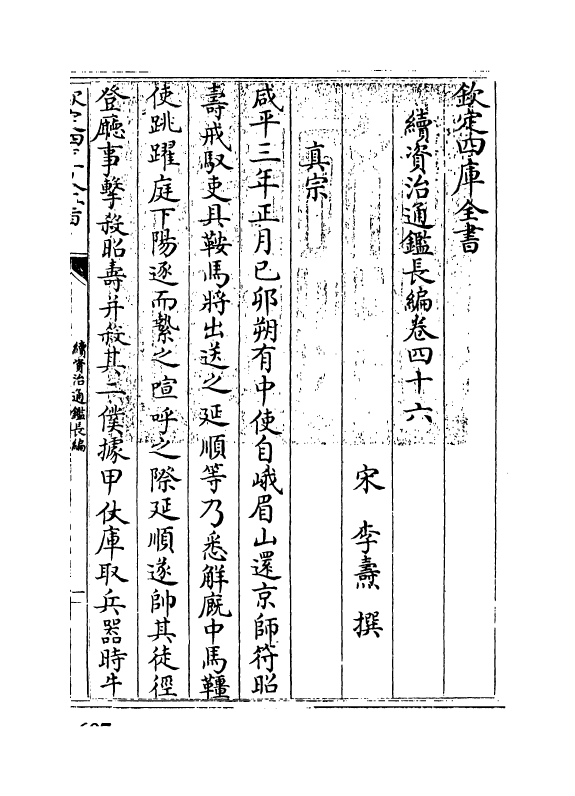 欽定四庫全書
續資治通鑑長編卷四十六
宋 李燾 撰
真宗
咸平三年正月己卯朔有中使自峨眉山還京師符昭
壽戒馭吏具鞍馬將出送之延順等乃悉解廐中馬韁
使跳躍庭下陽逐而縶之喧呼之際延順遂帥其徒徑
登廳事擊殺昭壽并殺其二僕據甲仗庫取兵器時牛
欽定四庫全書
續資治通鑑長編
一